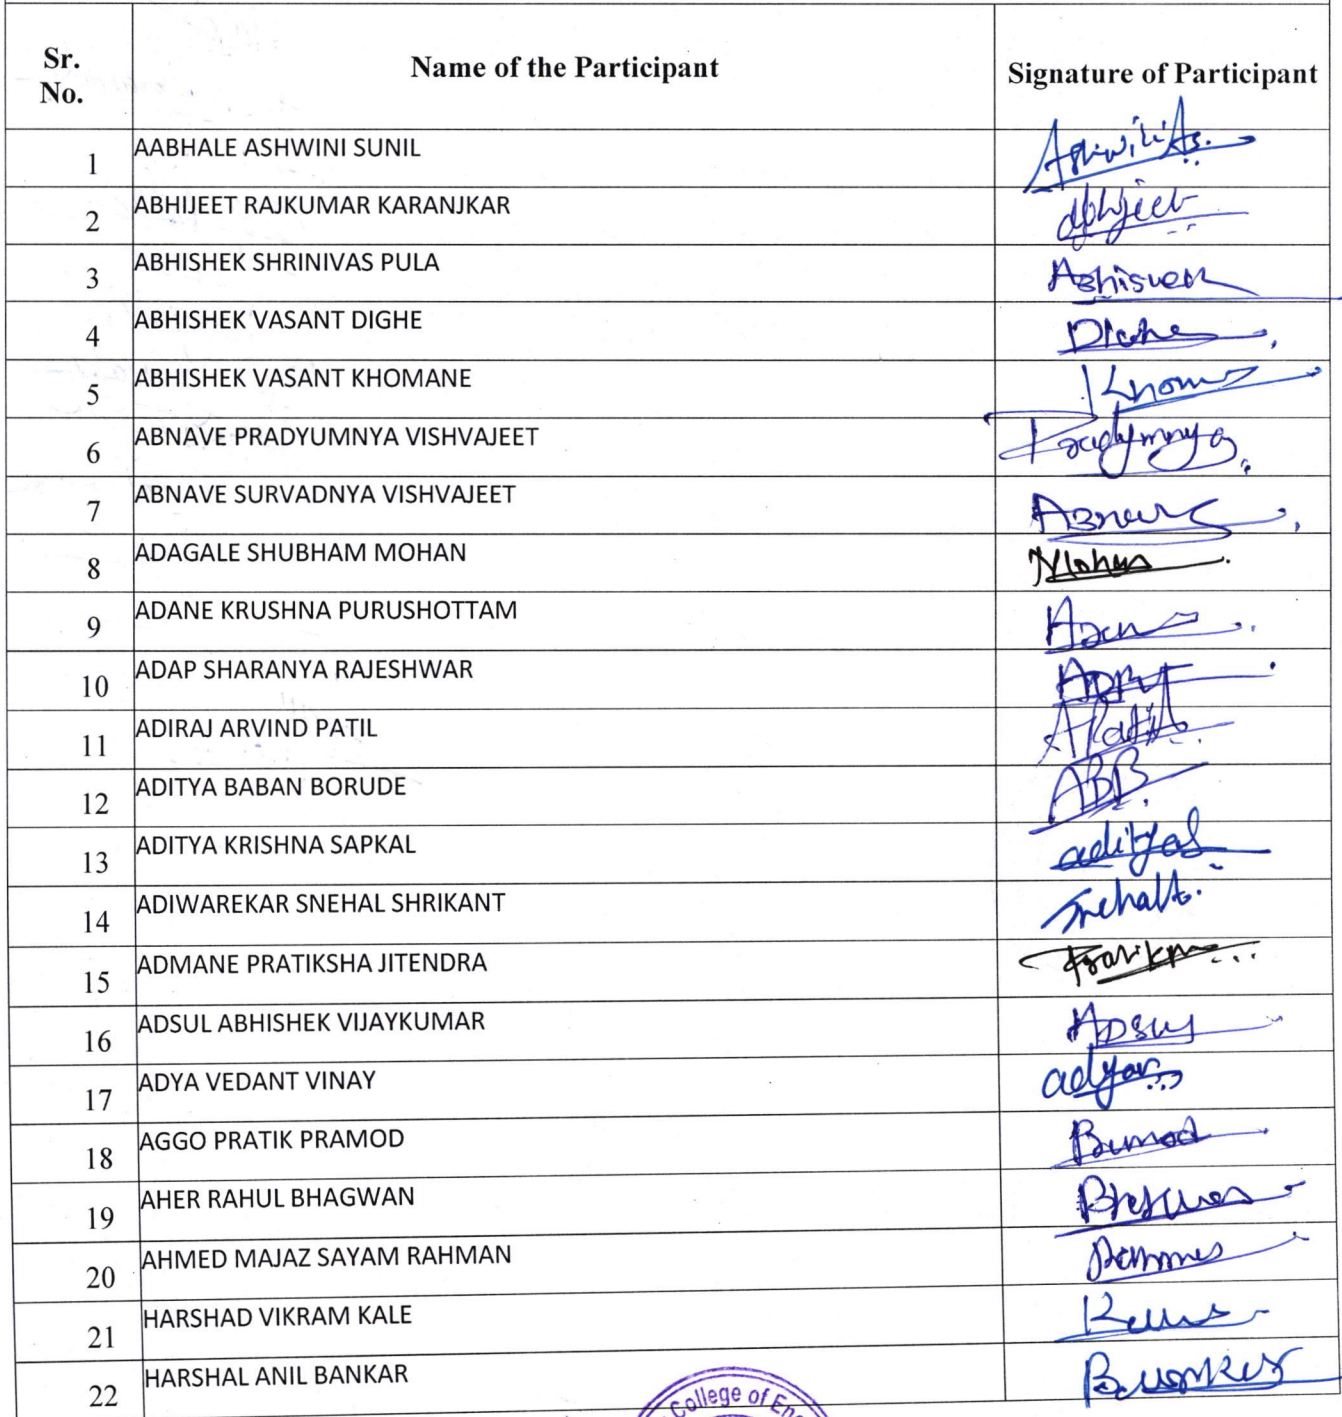 Sr. No. Name of the Participant Signature of Participant
1 AABHALE ASHWINI SUNIL
2 ABHIJEET RAJKUMAR KARANJKAR Abhijeet
3 ABHISHEK SHRINIVAS PULA
4 ABHISHEK VASANT DIGHE
5 ABHISHEK VASANT KHOMANE
6 ABNAVE PRADYUMNYA VISHVAJEET
7 ABNAVE SURVADNYA VISHVAJEET
8 ADAGALE SHUBHAM MOHAN
9 ADANE KRUSHNA PURUSHOTTAM
10 ADAP SHARANYA RAJESHWAR
11 ADIRAJ ARVIND PATIL APatil
12 ADITYA BABAN BORUDE ABB
13 ADITYA KRISHNA SAPKAL
14 ADIWAREKAR SNEHAL SHRIKANT
15 ADMANE PRATIKSHA JITENDRA
16 ADSUL ABHISHEK VIJAYKUMAR
17 ADYA VEDANT VINAY
18 AGGO PRATIK PRAMOD
19 AHER RAHUL BHAGWAN
20 AHMED MAJAZ SAYAM RAHMAN
21 HARSHAD VIKRAM KALE
22 HARSHAL ANIL BANKAR
College of